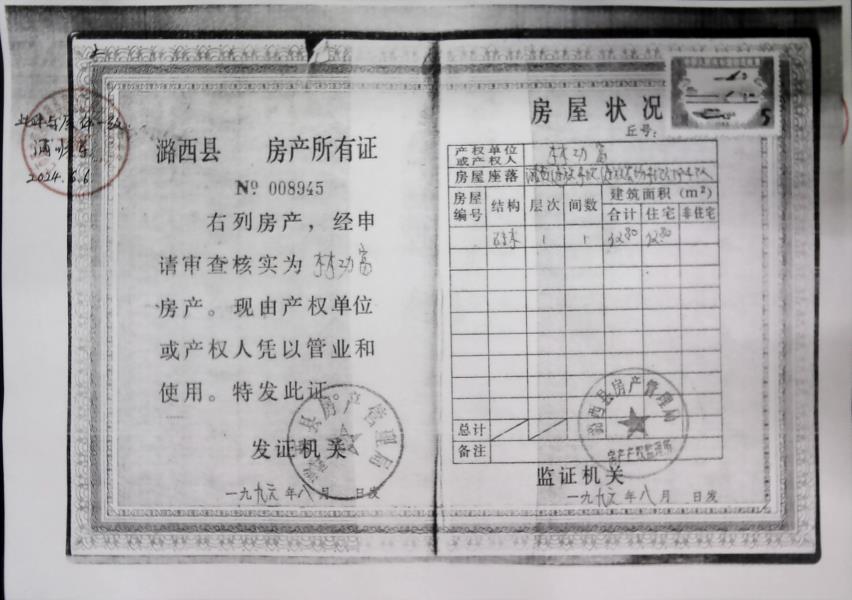 2024.6.6
潞西县 房产所有证
No 008945
右列房产，经申
请审查核实为 林功富
房产。现由产权单位
或产权人凭以管业和
使用。特发此证。
发证机关
一九九六年八月 日发
房屋状况
丘号：
产权单位或产权人 林功富
房屋座落
房屋编号 结构 层次 间数 建筑面积（m²）
合计 住宅 非住宅
1 1
总计
备注
潞西县房产管理局
监证机关
一九九六年八月 日发